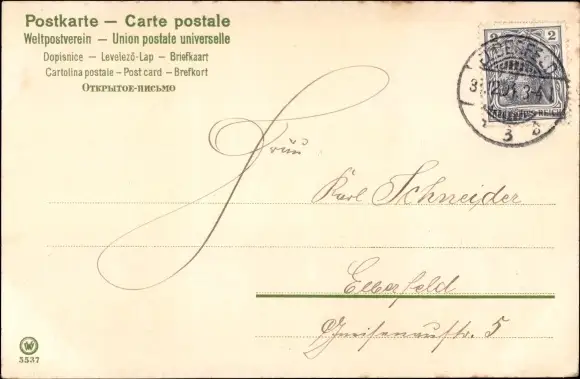 Postkarte – Carte postale
Weltpostverein – Union postale universelle
Dopisnice – Levelező-Lap – Briefkaart
Cartolina postale – Post card – Brefkort
Открытое-письмо
2 2
Karl Schneider
Elberfeld
Gneisenaustr. 5
5537